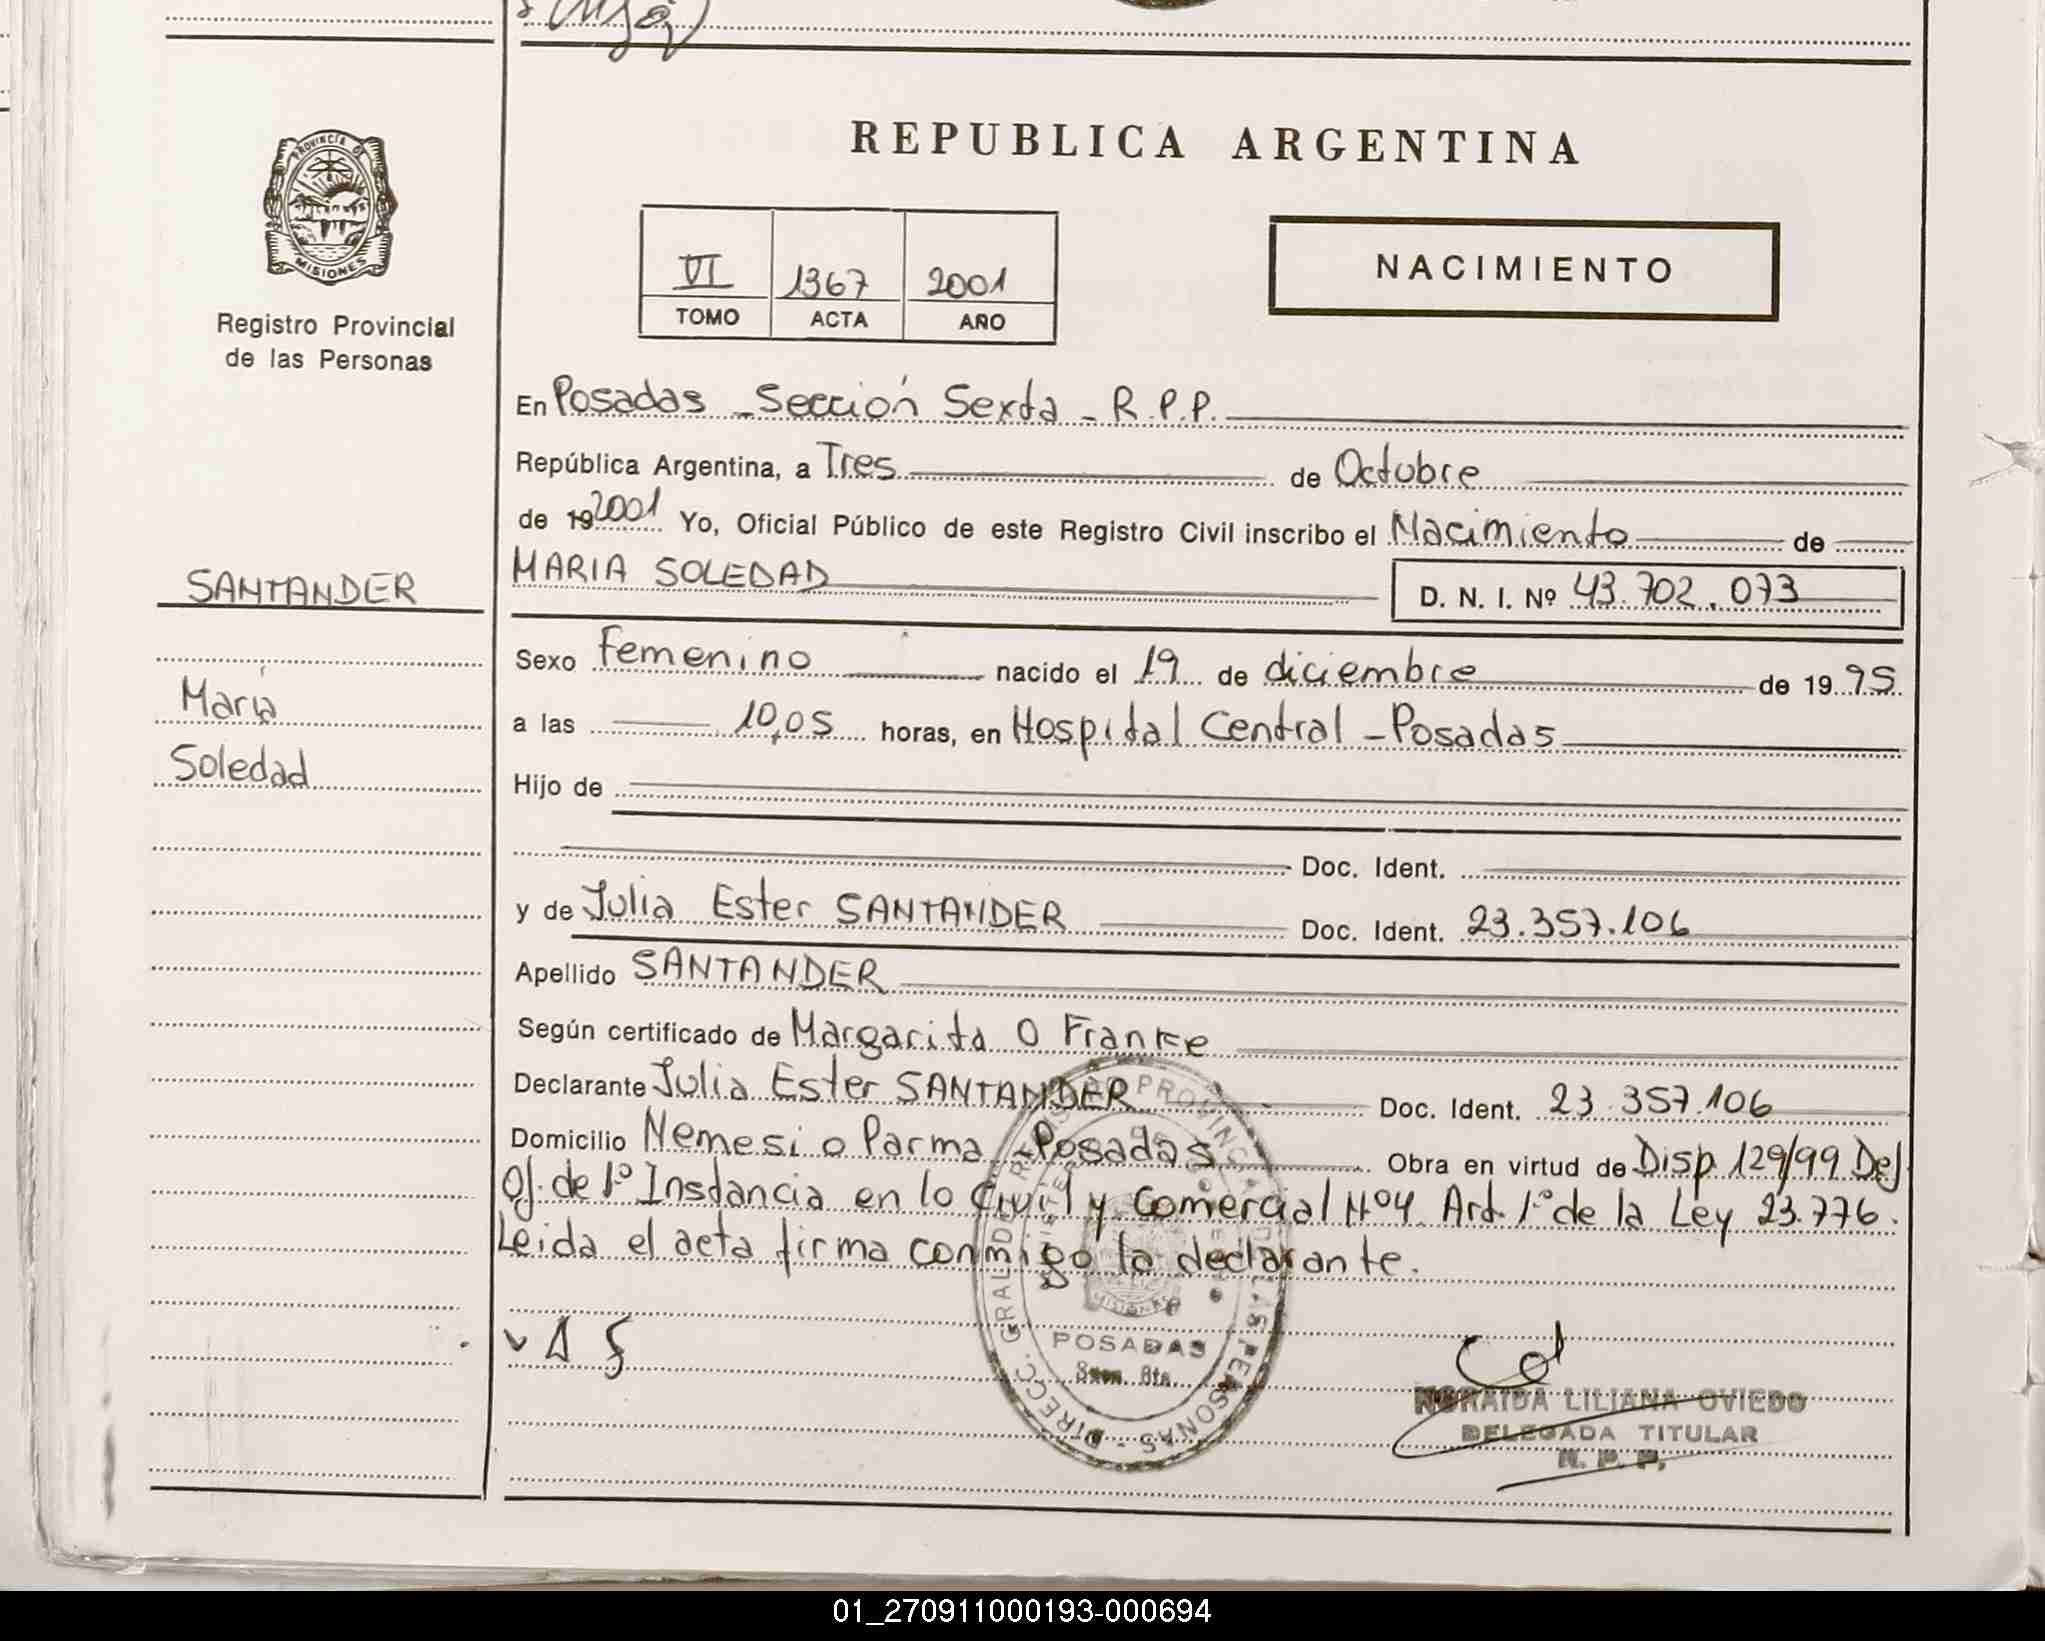 REPUBLICA ARGENTINA
PROVINCIA DE
MISIONES
Registro Provincial
de las Personas
VI 1367 2001
TOMO ACTA AÑO
NACIMIENTO
En Posadas - Sección Sexta - R.P.P.
República Argentina, a Tres de Octubre
de 19 2001 Yo, Oficial Público de este Registro Civil inscribo el Nacimiento de
MARIA SOLEDAD D. N. I. Nº 43.702.073
SANTANDER
María
Soledad
Sexo Femenino nacido el 19 de diciembre de 19 95
a las 10,05 horas, en Hospital Central - Posadas
Hijo de
Doc. Ident.
y de Julia Ester SANTANDER Doc. Ident. 23.357.106
Apellido SANTANDER
Según certificado de Margarita O Franke
Declarante Julia Ester SANTANDER Doc. Ident. 23.357.106
Domicilio Nemesio Parma - Posadas Obra en virtud de Disp. 129/99 Del
Oj. de 1º Instancia en lo Civil y Comercial Nº4 Art. 1º de la Ley 23.776.
Leida el acta firma conmigo la declarante.
DIRECC. GRAL. DE REGISTRO PROVINCIAL DE LAS PERSONAS
MISIONES
POSADAS
Secc. 6ta.
NORAIDA LILIANA OVIEDO
DELEGADA TITULAR
R. P. P.
01_270911000193-000694